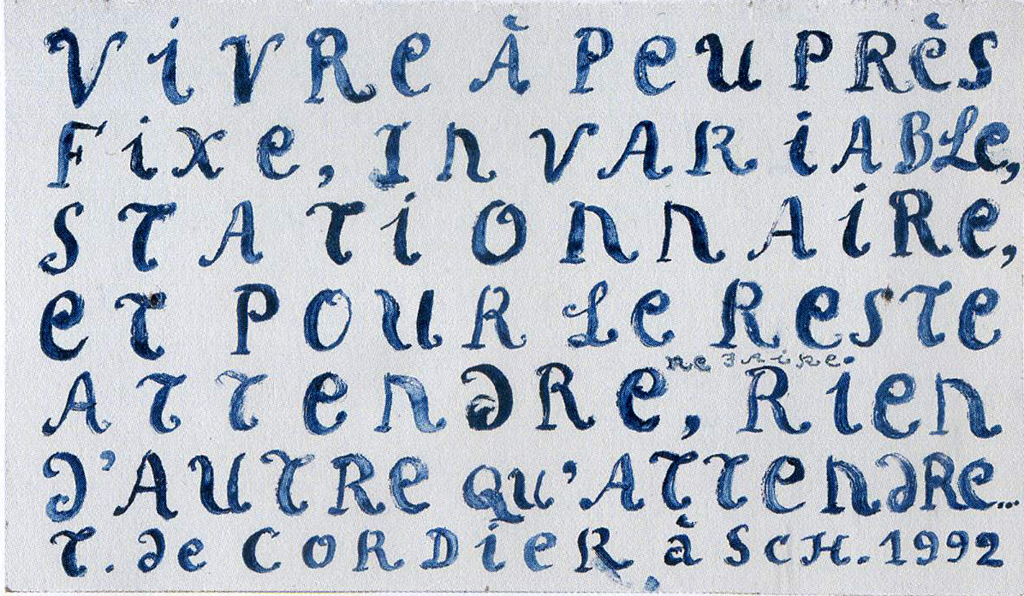 VIVRE À PEU PRÈS
FIXE, INVARIABLE,
STATIONNAIRE,
ET POUR LE RESTE
ne faire
ATTENDRE, RIEN
D'AUTRE QU'ATTENDRE...
T. de CORDIER, à SCH. 1992